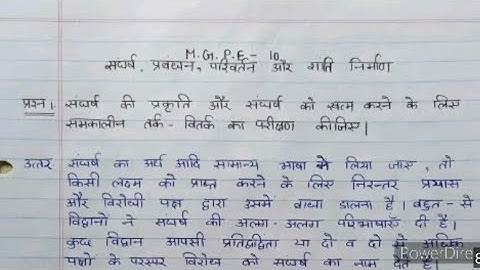 M.G.P.E - 10
संघर्ष, प्रबंधन, परिवर्तन और शांति निर्माण
प्रश्न 1 संघर्ष की प्रकृति और संघर्ष को खत्म करने के लिए
समकालीन तर्क - वितर्क का परीक्षण कीजिए।
उत्तर संघर्ष का अर्थ आदि सामान्य भाषा में लिया जाए, तो
किसी लक्ष्य को प्राप्त करने के लिए निरन्तर प्रयास
और विरोधी पक्ष द्वारा उसमें बाधा डालना है। बहुत - से
विद्वानों ने संघर्ष की अलग - अलग परिभाषाएँ दी हैं।
कुछ विद्वान आपसी प्रतिद्वंदिता या दो व दो से अधिक
पक्षों के परस्पर विरोध को संघर्ष का नाम देते हैं।
PowerDire